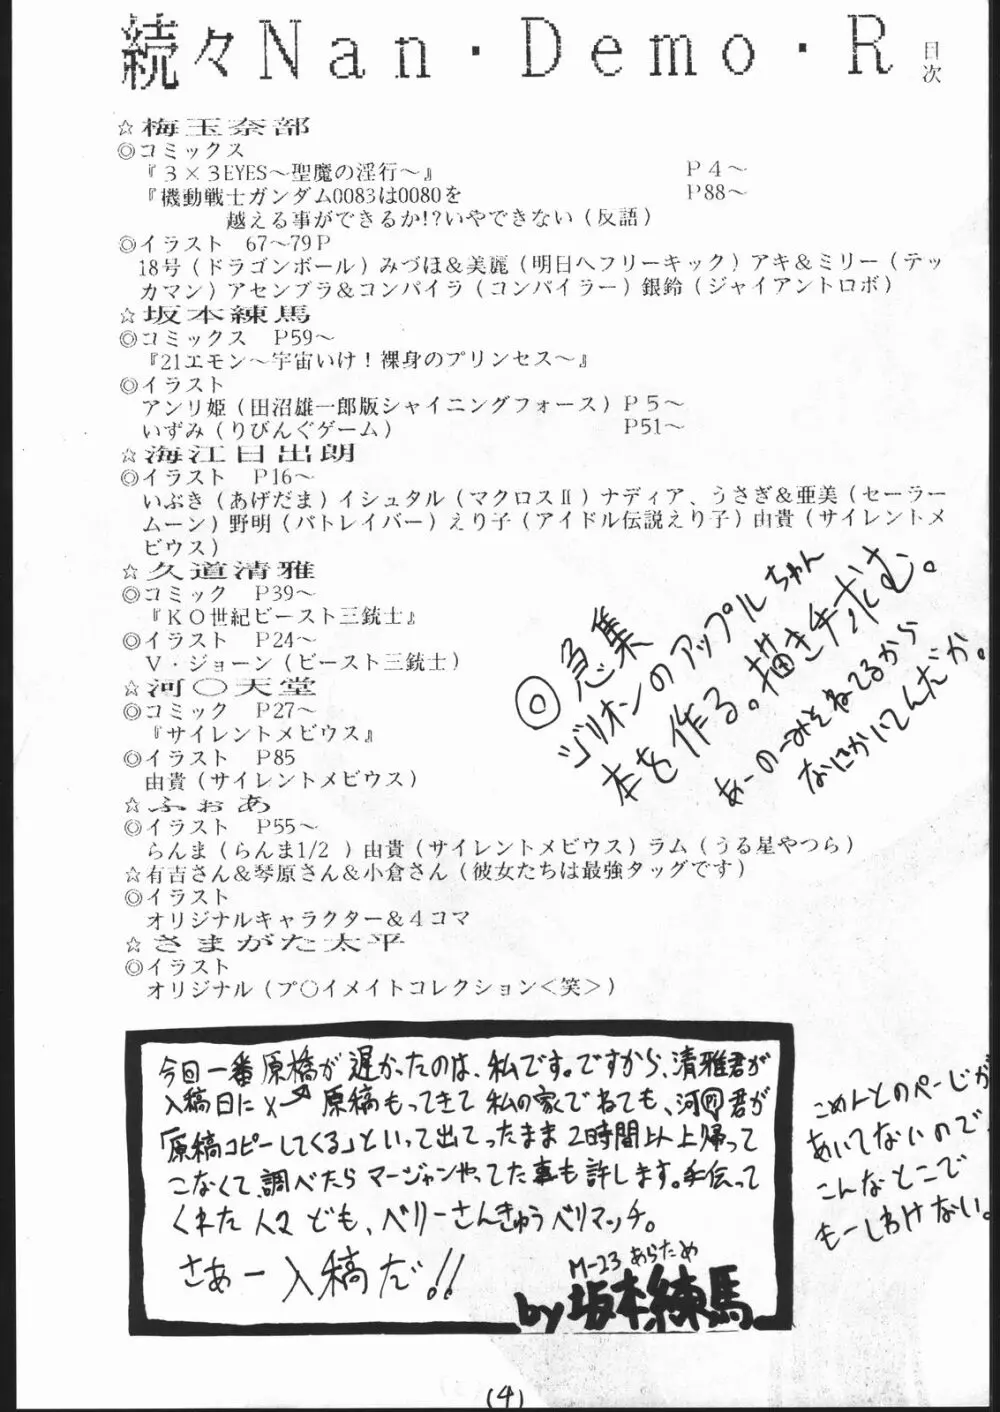 続々Nan・Demo・R 目次
☆梅玉奈部
◎コミックス
『3×3EYES～聖魔の淫行～』 P4～
『機動戦士ガンダム0083は0080を P88～
越える事ができるか!?いやできない（反語）
◎イラスト 67～79P
18号（ドラゴンボール）みづほ＆美麗（明日へフリーキック）アキ＆ミリー（テッ
カマン）アセンブラ＆コンパイラ（コンパイラー）銀鈴（ジャイアントロボ）
☆坂本練馬
◎コミックス P59～
『21エモン～宇宙いけ！裸身のプリンセス～』
◎イラスト
アンリ姫（田沼雄一郎版シャイニングフォース）P5～
いずみ（りびんぐゲーム） P51～
☆海江日出朗
◎イラスト P16～
いぶき（あげだま）イシュタル（マクロスⅡ）ナディア、うさぎ＆亜美（セーラー
ムーン）野明（パトレイバー）えり子（アイドル伝説えり子）由貴（サイレントメ
ビウス）
☆久道清雅
◎コミック P39～
『KO世紀ビースト三銃士』
◎イラスト P24～
V・ジョーン（ビースト三銃士）
☆河〇天堂
◎コミック P27～
『サイレントメビウス』
◎イラスト P85
由貴（サイレントメビウス）
☆ふぉあ
◎イラスト P55～
らんま（らんま1/2 ）由貴（サイレントメビウス）ラム（うる星やつら）
☆有吉さん＆琴原さん＆小倉さん（彼女たちは最強タッグです）
◎イラスト
オリジナルキャラクター＆4コマ
☆さまがた太平
◎イラスト
オリジナル（プ〇イメイトコレクション＜笑＞）
◎急集
ジリオンのアップルちゃん
本を作る。描き手求む。
あーのーみそねてるから
なにかいてんだか。
今回一番原橋が遅かったのは、私です。ですから、清雅君が
入稿日に 原稿もってきて私の家でねても、河 君が
「原稿コピーしてくる」といって出てったまま2時間以上帰って
こなくて、調べたらマージャンやってた事も許します。手伝って
くれた人々ども、ベリーさんきゅうベリマッチ。
さあー入稿だ!!
M-23 あらため
by 坂本練馬
こめんとのぺーじが
あいてないので、
こんなとこで
もーしわけない。
(4)